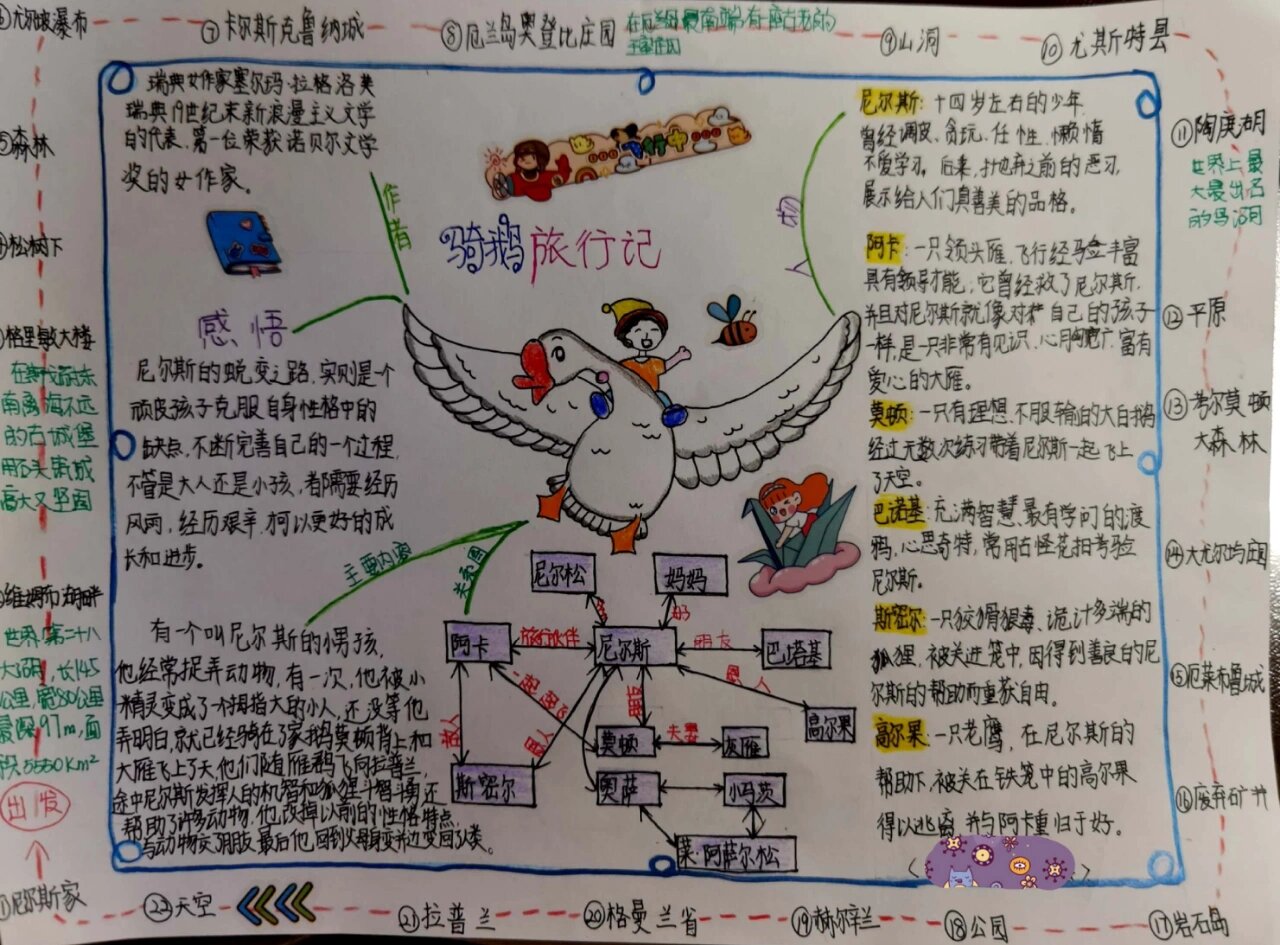 骑鹅旅行记
作者
瑞典女作家塞尔玛·拉格洛芙
瑞典19世纪末新浪漫主义文学
的代表、第一位荣获诺贝尔文学
奖的女作家。
感悟
尼尔斯的蜕变之路,实则是个
顽皮孩子克服自身性格中的
缺点,不断完善自己的一个过程,
不管是大人还是小孩,都需要经历
风雨,经历艰辛,可以更好的成
长和进步。
主要内容
有一个叫尼尔斯的小男孩,
他经常捉弄动物,有一次,他被小
精灵变成了个拇指大的小人,还没等他
弄明白,就已经骑在了家鹅莫顿背上和
大雁飞上了天,他们随雁鹅飞向拉普兰,
途中尼尔斯发挥人的机智和狐狸斗智斗勇还
帮助了许多动物,他改掉以前的性格特点,
与动物交朋友,最后他回到父母身旁并边变回了人类。
关系图
尼尔松
妈妈
阿卡
旅行伙伴
尼尔斯
朋友
巴塔基
恩人
高尔果
敌人
莫顿
夫妻
灰雁
斯密尔
奥萨
小玛茨
阿萨尔松
人物
尼尔斯:十四岁左右的少年,
曾经调皮、贪玩、任性、懒惰
不爱学习。后来,他弃之前的恶习,
展示给人们真善美的品格。
阿卡:一只领头雁,飞行经验丰富
具有领导才能,它曾经救了尼尔斯,
并且对尼尔斯就像对待自己的孩子
一样,是一只非常有见识、心胸宽广、富有
爱心的大雁。
莫顿:一只有理想、不服输的大白鹅
经过无数次练习带着尼尔斯一起飞上
了天空。
巴诺基:充满智慧、最有学问的渡
鸦,心思奇特,常用古怪花招考验
尼尔斯。
斯密尔:一只狡猾狠毒、诡计多端的
狐狸,被关进笼中,因得到善良的尼
尔斯的帮助而重获自由。
高尔果:一只老鹰,在尼尔斯的
帮助下,被关在铁笼中的高尔果
得以逃离,并与阿卡重归于好。
出发
①尼尔斯家
世界第二十八
大湖,长145
公里,宽80公里
最深97m,面
积5550km²
格里敏大楼
南离海不远
的古城堡
用石头筑成
高大又坚固
松树下
⑤森林
尤尔坡瀑布
⑦卡尔斯克鲁纳城
⑧厄兰岛奥登比庄园
在厄兰岛最南端,有座古老的
王室庄园
⑨山洞
⑩尤斯特县
⑪陶庚湖
世界上最
大最出名
的鸟湖
⑫平原
⑬考尔莫顿
大森林
⑭大尤尔坞庄园
⑮厄莱布鲁城
⑯废弃矿井
⑰岩石岛
⑱公园
⑲赫尔辛兰
⑳格曼兰省
㉑拉普兰
㉒天空